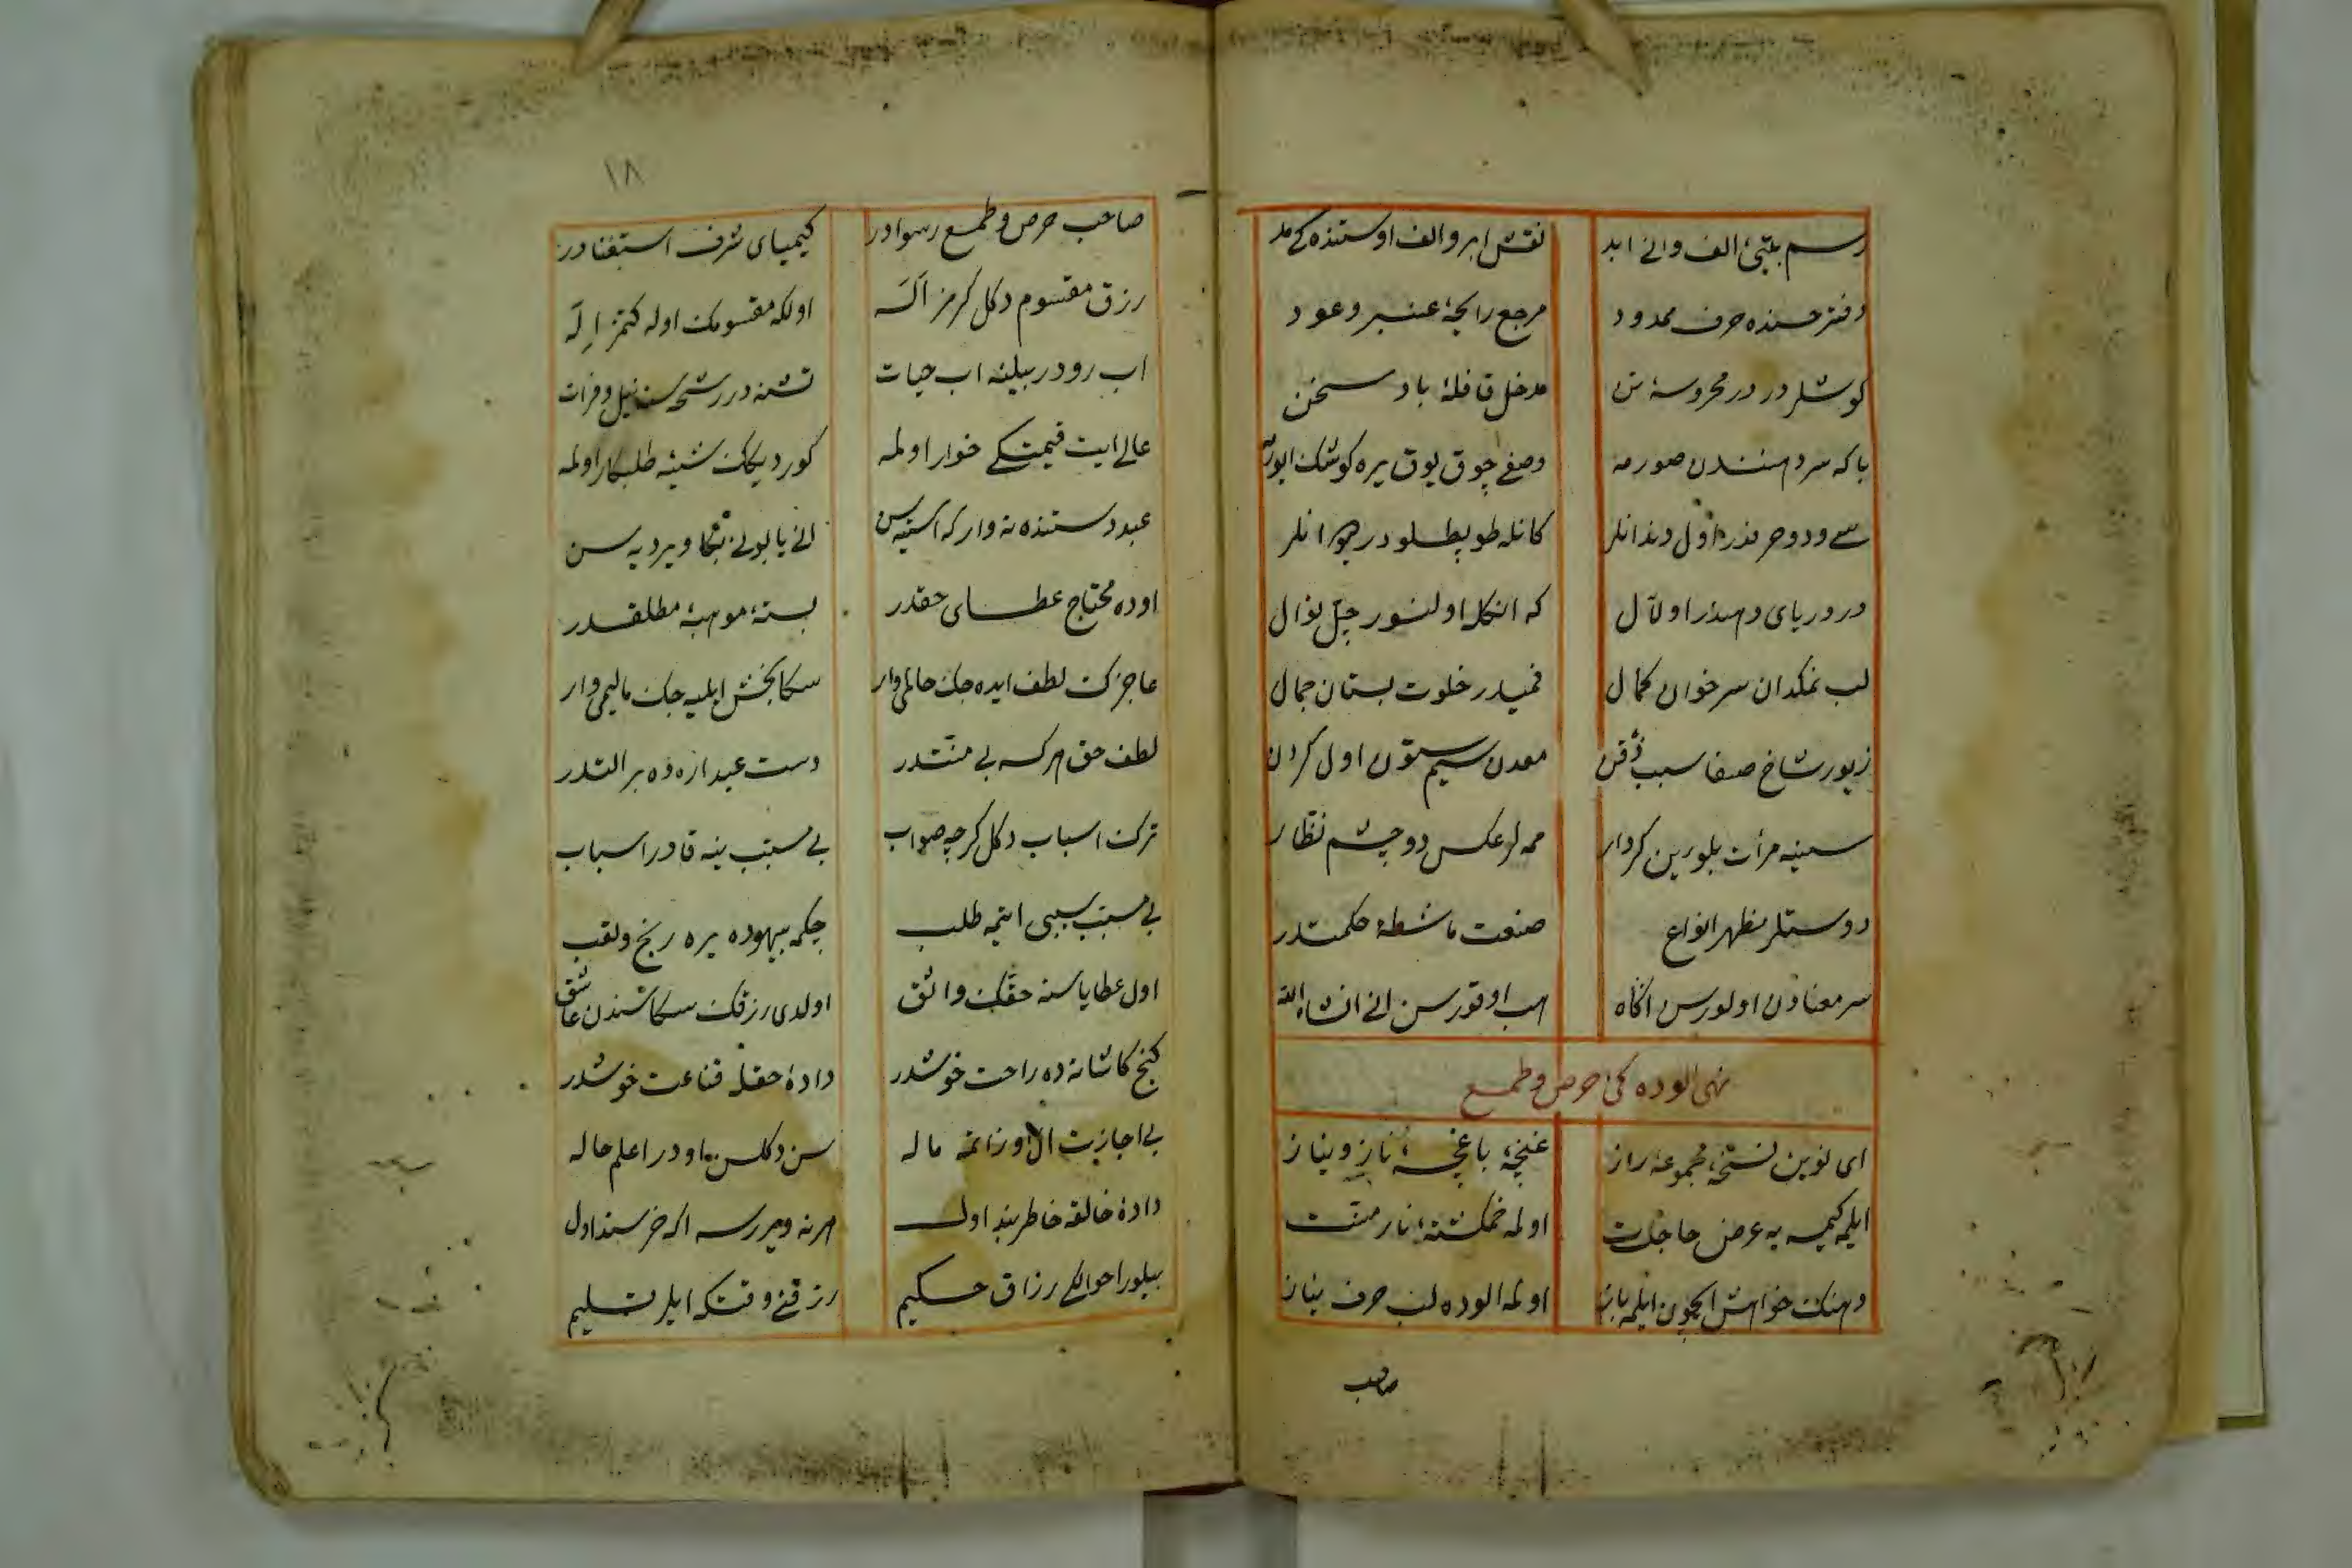 رسم بینی الف والی ابد
نقش ابرو الف اوستنده کی مد
دفتر حسنده حرف ممدود
مرجع رایحهٔ عنبر و عود
کوشلر در در محروسهٔ تن
مدخل قافلهٔ باد سخن
باکه سر دهنندن صورمه
وصفی چوق یوق یره کوشک
دندانلر
کانله طوپطلودر انلر
در دریای دهندر اول آل
که انکله اولنور حل
لب نمکدان سر خوان کمال
فمیدر خلوت بستان جمال
زیور شاخ صفا سیب ذقن
معدن سیم ستون اول کردن
سینه مرآت بلورین کردار
ممه لر عکس دو چشم نظار
دوستلر مظهر انواع
صنعت ماشطهٔ حکمتدر
سر معنادن اولورسن آگاه
هب اوقورسن انی ان شاء الله
نهی الوده کی حرص و طمع
ای نوین نسخهٔ مجموعهٔ راز
غنچهٔ باغچهٔ ناز و نیاز
ایلمه کیمسه یه عرض حاجت
اولمه خمکشتهٔ بار منت
دهنک خواهش ایچون ایلمه باز
اولمه الوده لب حرف نیاز
صاحب
١٨
صاحب حرص و طمع رسوادر
کیمیای شرف استغنادر
رزق مقسوم دکل کرمز اله
اولکه مقسومک اوله کتمز اله
اب رودر بیلنه اب حیات
تشنه در رشحه سنه نیل و فرات
عالی ایت قیمتکی خوار اولمه
کوردیکک شیئه طلبکار اولمه
عبد دستنده نه وار که استیه سن
انی یا بولی بکا ویر دیه سن
اوده محتاج عطای حقدر
بستهٔ موهبهٔ مطلقدر
عاجزک لطف ایده جک حالی وار
سکا بخش ایلیه جک مالیمی وار
لطف حق هرکسه بی منتدر
دست عبد اره ده بر التدر
ترک اسباب دکل کرچه صواب
بی سبب ینه قادر اسباب
بی سبب سببی ایتمه طلب
چکمه بیهوده یره رنج و تعب
اول عطایاسنه حقک واثق
اولدی رزقک سکا سندن عاشق
کنج کاشانه ده راحت خوشدر
دادهٔ حقله قناعت خوشدر
بی اجازیت ال اوزاتمه ماله
سن دکلسن اودر اعلم حاله
دادهٔ خالقه خاطر بند اول
هر نه ویررسه اکه خرسند اول
بیلور احوالکی رزاق حکیم
رزقنی وقتکه ایلر تسلیم